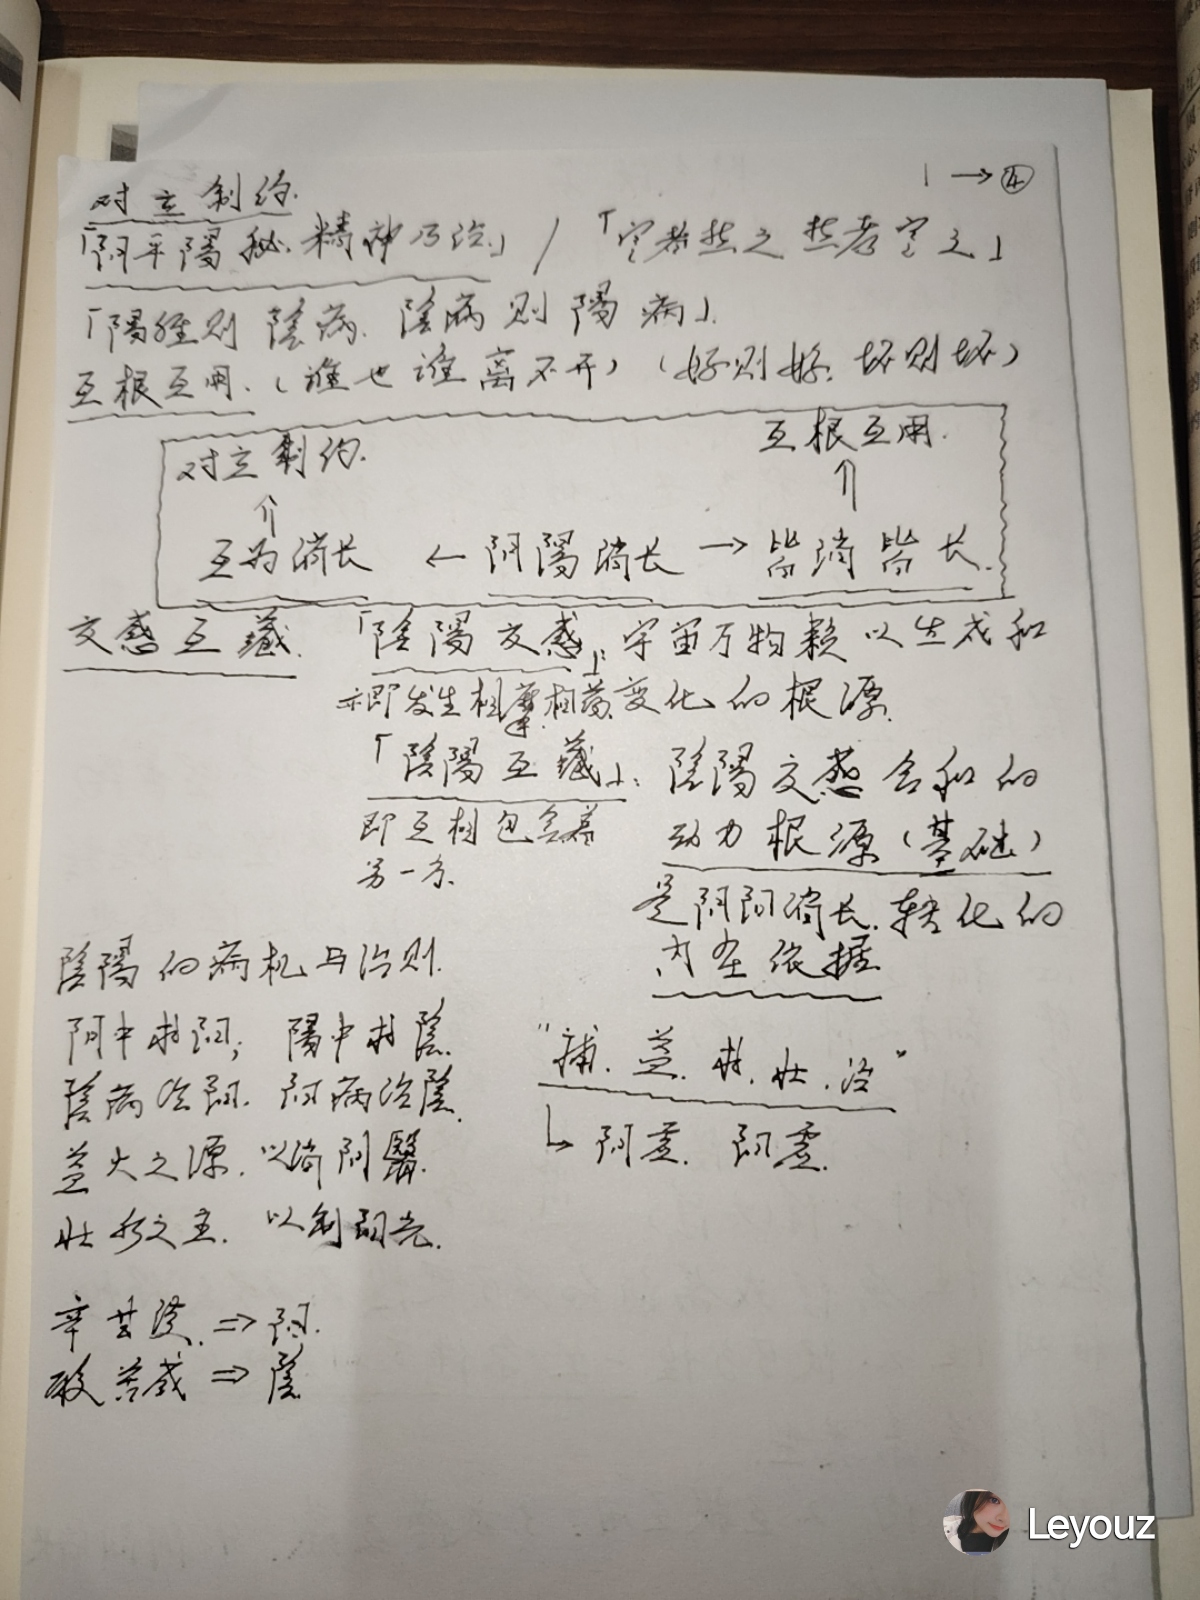 1→④
对立制约.
「阴平陽秘.精神乃治.」/「寒者热之 热者寒之」
「陽胜则陰病.陰病则陽病」.
互根互用.(谁也谁离不开)(好则好.坏则坏)
对立制约. 互根互用.
⇑ ⇑
互为消长 ← 阴陽消长 → 皆消皆长.
交感互藏. 「陰陽交感」:宇宙万物赖以生成和
亦即发生相摩相荡 变化的根源.
「陰陽互藏」: 陰陽交感合和的
即互相包含着 动力根源(基础)
另一方. 是阴阳消长.转化的
内在依据
陰陽的病机与治则.
阴中求阳; 陽中求陰.
陰病治阳. 阳病治陰.
益火之源.以消阴翳.
壮水之主.以制阳光.
"補.益.求.壮.治"
↳ 阴虚. 阳虚.
辛甘淡.⇒阳.
酸苦咸⇒陰
Leyouz